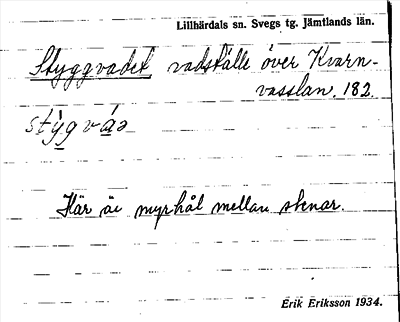 Lillhärdals sn. Svegs tg. Jämtlands län.
Styggvadet vadställe över Kvarn-
vasslan. 182.
stỳgváə
Här är myrhål mellan stenar.
Erik Eriksson 1934.